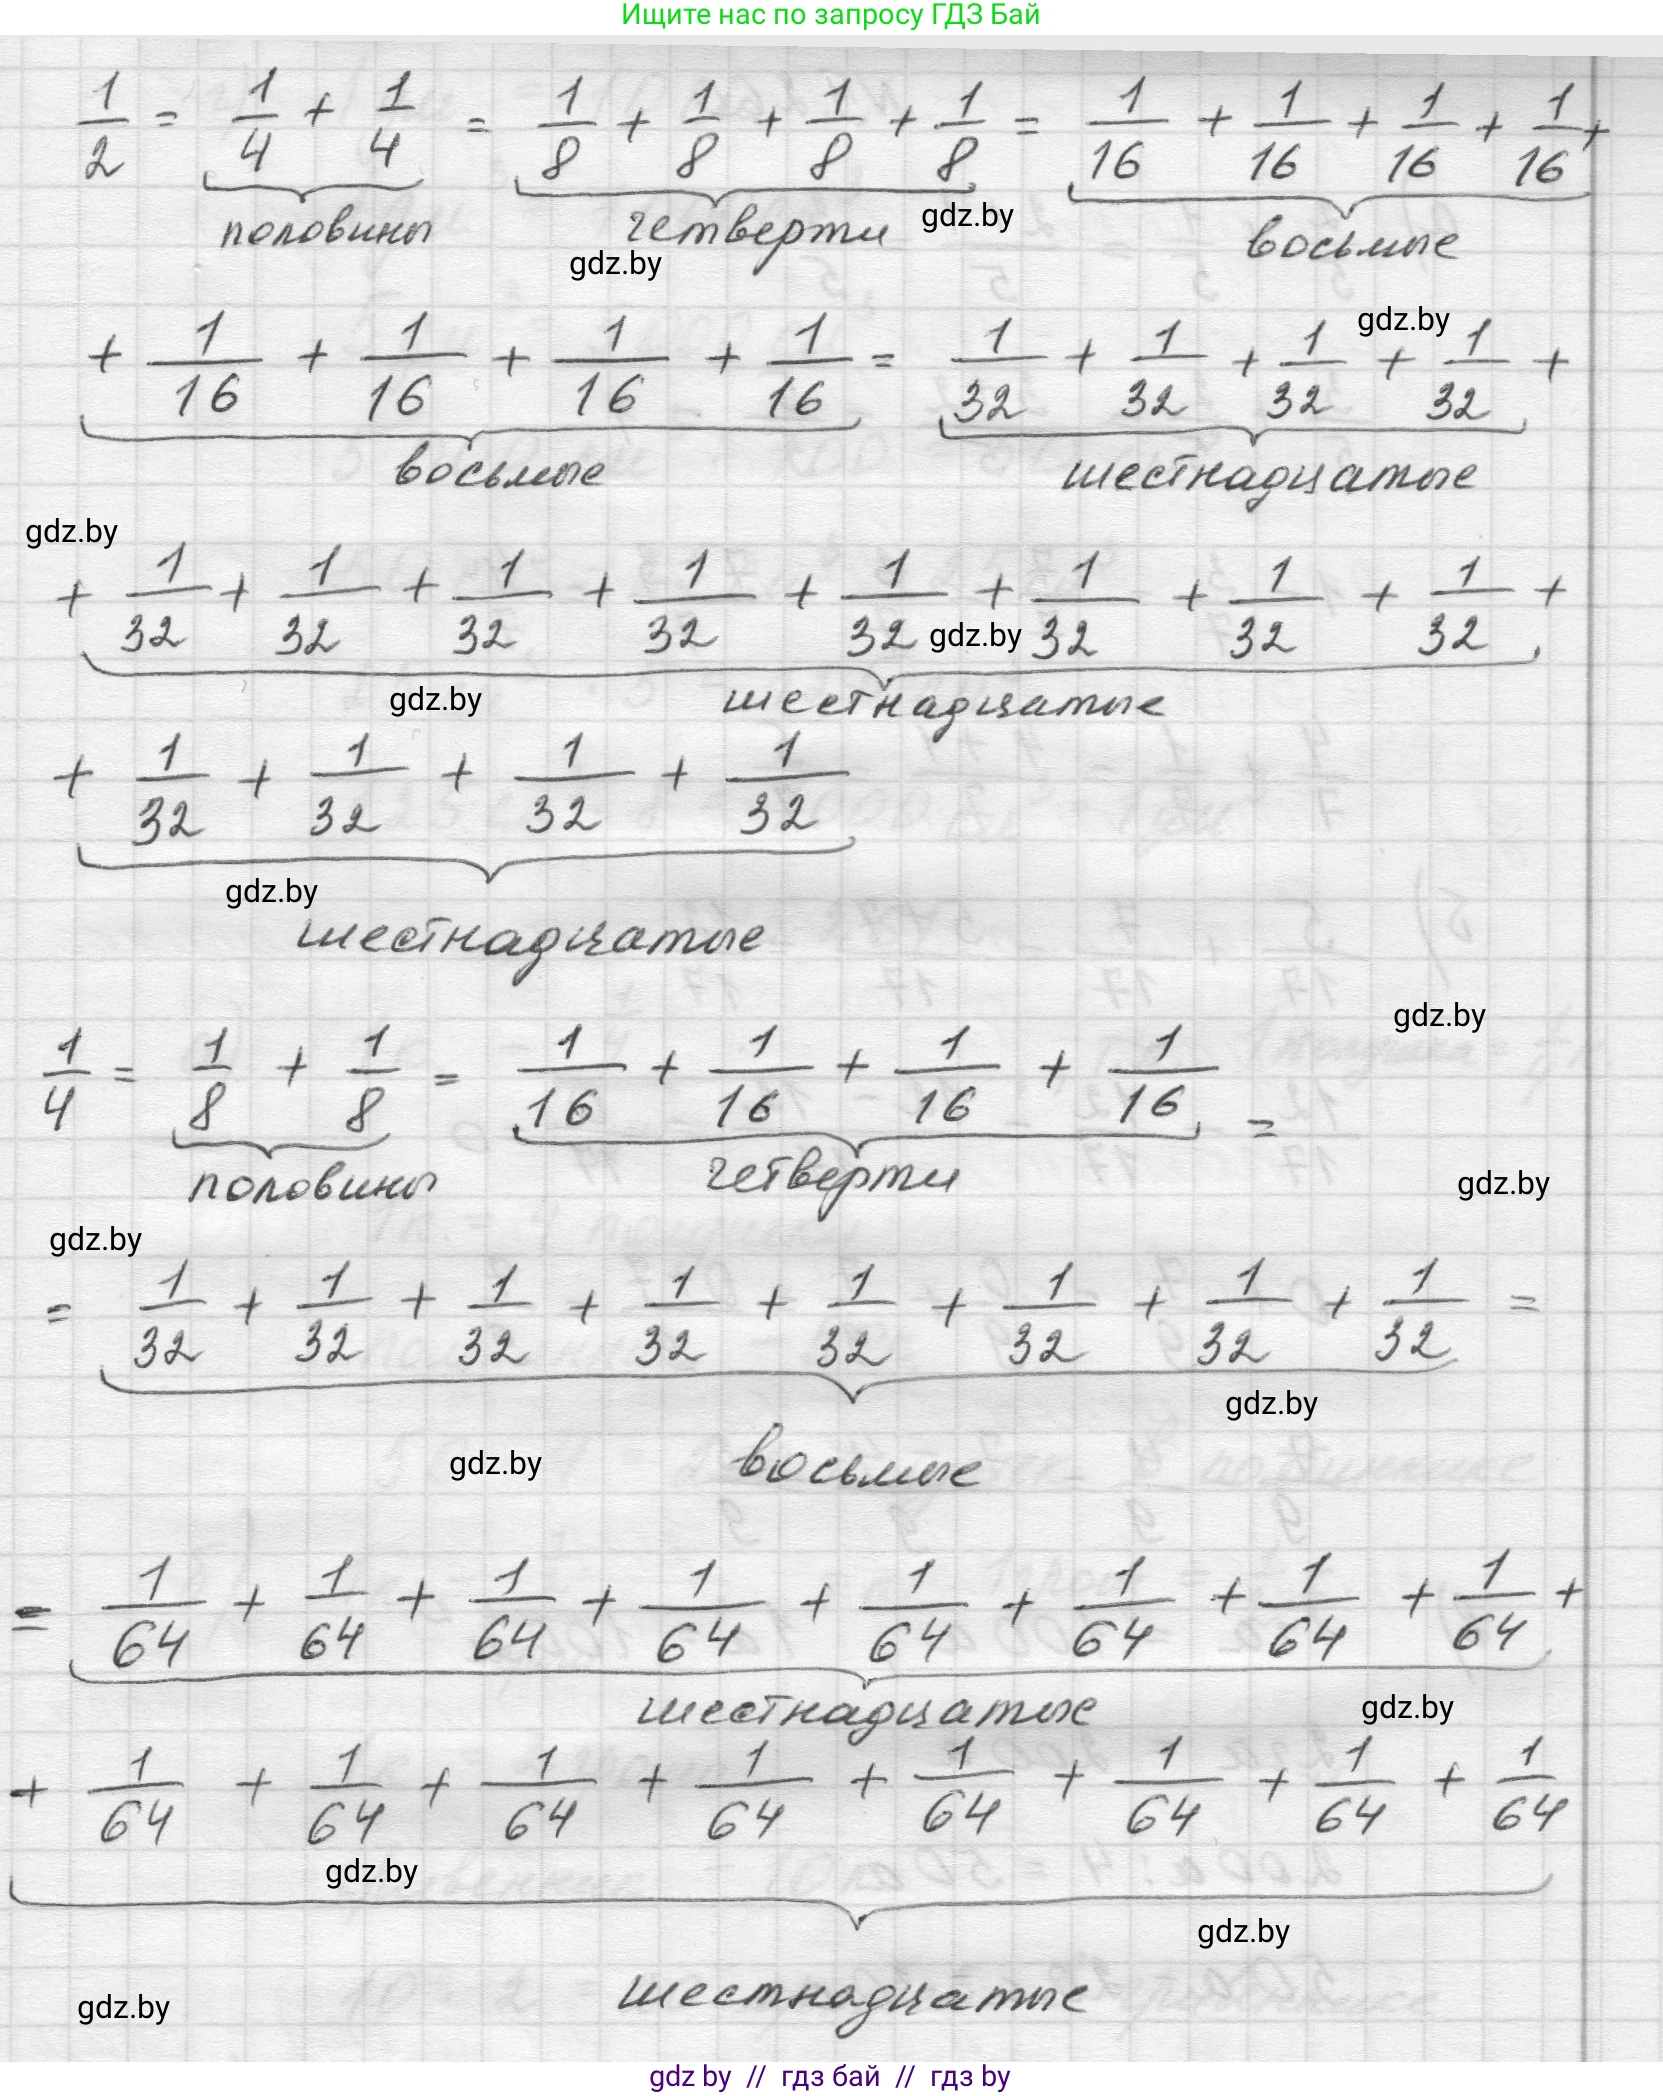 Ищите нас по запросу ГДЗ Бай
1/2 = 1/4 + 1/4 = 1/8 + 1/8 + 1/8 + 1/8 = 1/16 + 1/16 + 1/16 + 1/16 +
половины четверти gdz.by восьмые
gdz.by
gdz.by
+ 1/16 + 1/16 + 1/16 + 1/16 = 1/32 + 1/32 + 1/32 + 1/32 +
восьмые шестнадцатые
gdz.by
+ 1/32 + 1/32 + 1/32 + 1/32 + 1/32 + 1/32 + 1/32 + 1/32 +
gdz.by
gdz.by шестнадцатые
+ 1/32 + 1/32 + 1/32 + 1/32
gdz.by
шестнадцатые
gdz.by
1/4 = 1/8 + 1/8 = 1/16 + 1/16 + 1/16 + 1/16 =
половины четверти gdz.by
gdz.by
= 1/32 + 1/32 + 1/32 + 1/32 + 1/32 + 1/32 + 1/32 + 1/32 =
gdz.by
gdz.by восьмые
= 1/64 + 1/64 + 1/64 + 1/64 + 1/64 + 1/64 + 1/64 + 1/64 +
шестнадцатые gdz.by
+ 1/64 + 1/64 + 1/64 + 1/64 + 1/64 + 1/64 + 1/64 + 1/64
gdz.by
gdz.by
шестнадцатые
gdz.by
gdz by // гдз бай // gdz by